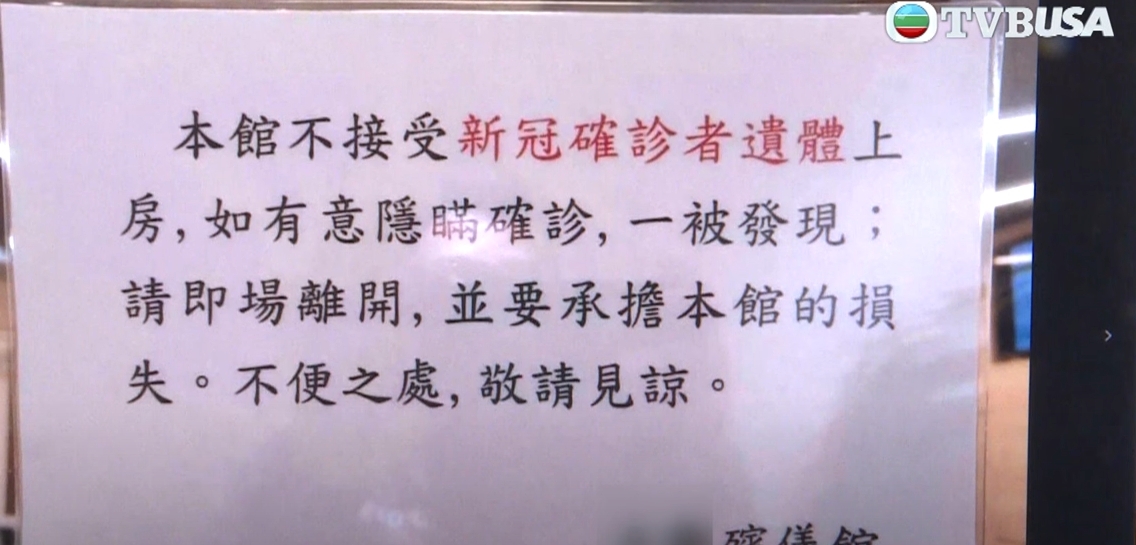 TVBUSA
本館不接受新冠確診者遺體上
房,如有意隱瞞確診,一被發現；
請即場離開,並要承擔本館的損
失。不便之處,敬請見諒。
殯儀館